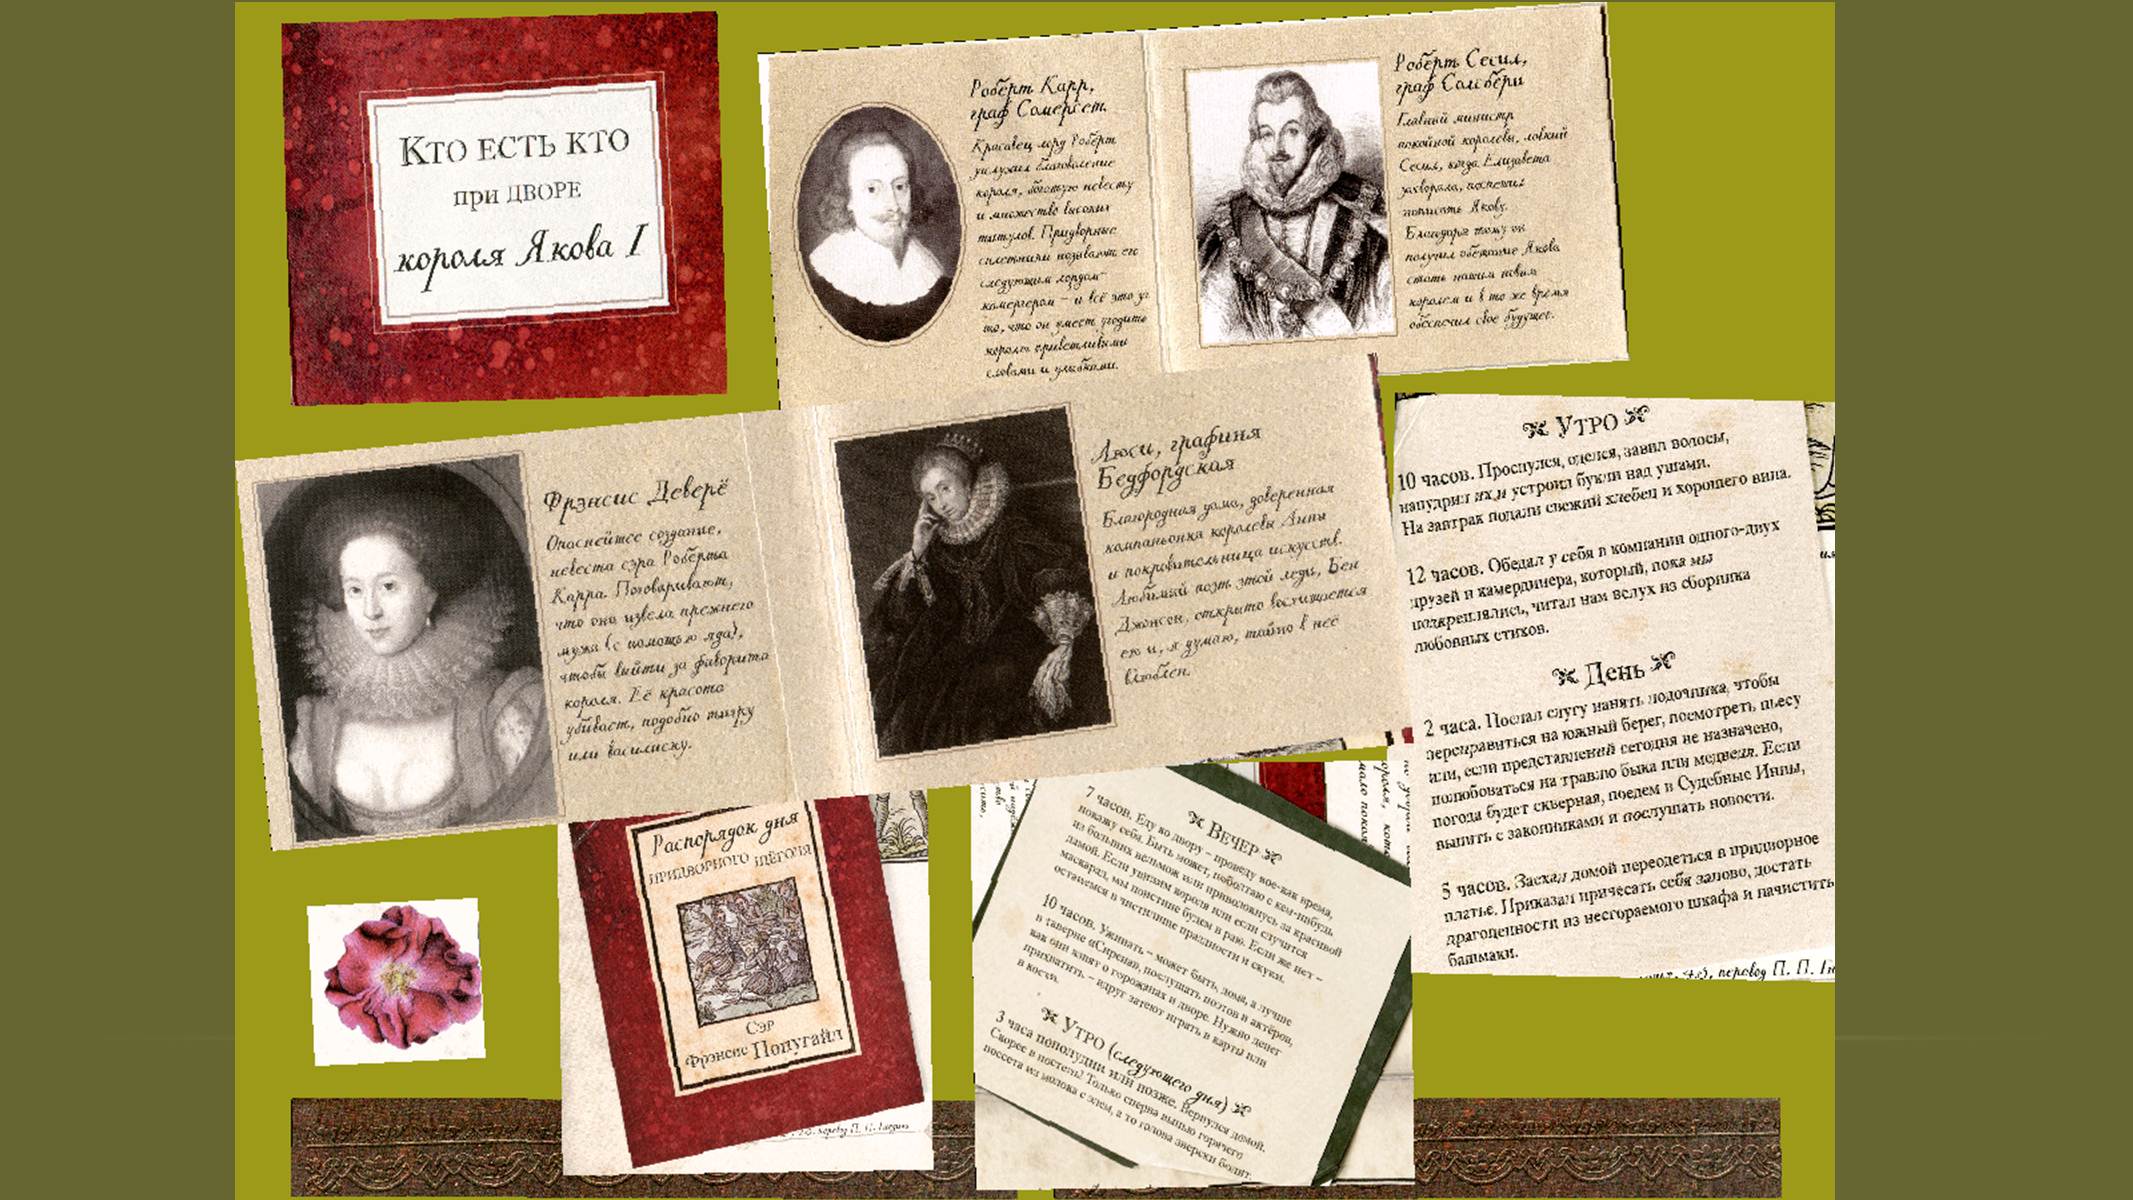 Кто есть кто
при дворе
короля Якова I
Роберт Карр,
граф Сомерсет.
Красавец лорд Роберт
заслужил благоволение
короля, богатую невесту
и множество высоких
титулов. Придворные
сплетники называют его
следующим лордом-
камергером – и всё это за
то, что он умеет угодить
королю приветливыми
словами и улыбками.
Роберт Сесил,
граф Солсбери
Главный министр
покойной королевы, ловкий
Сесил, когда Елизавета
захворала, поспешил
написать Якову.
Благодаря тому он
получил обещание Якова
стать нашим новым
королем и в то же время
обеспечил свое будущее.
Фрэнсис Деверё
Опаснейшее создание,
невеста сэра Роберта
Карра. Поговаривают,
что она извела прежнего
мужа (с помощью яда),
чтобы выйти за фаворита
короля. Её красота
убивает, подобно тигру
или василиску.
Люси, графиня
Бедфордская
Благородная дама, доверенная
компаньонка королевы Анны
и покровительница искусств.
Любимый поэт этой леди, Бен
Джонсон, открыто восхищается
ею и, я думаю, тайно в неё
влюблен.
Утро
10 часов. Проснулся, оделся, завил волосы,
напудрил их и устроил букли над ушами.
На завтрак подали свежий хлебец и хорошего вина.
12 часов. Обедал у себя в компании одного-двух
друзей и камердинера, который, пока мы
подкреплялись, читал нам вслух из сборника
любовных стихов.
День
2 часа. Послал слугу нанять лодочника, чтобы
переправиться на южный берег, посмотреть пьесу
или, если представлений сегодня не назначено,
полюбоваться на травлю быка или медведя. Если
погода будет скверная, поедем в Судебные Инны,
выпить с законниками и послушать новости.
5 часов. Заехал домой переодеться в придворное
платье. Приказал причесать себя заново, достать
драгоценности из несгораемого шкафа и начистить
башмаки.
перевод П. П.
Распорядок дня
придворного щёголя
Сэр
Фрэнсис Попугайл
перевод П. П.
Вечер
7 часов. Еду ко двору – проведу кое-как время,
покажу себя. Быть может, поболтаю с кем-нибудь
из больших вельмож или приволокнусь за красивой
дамой. Если увидим короля или если случится
маскарад, мы поистине будем в раю. Если же нет –
останемся в чистилище праздности и скуки.
10 часов. Ужинать – может быть, дома, а лучше
в таверне «Сирена», послушать поэтов и актёров,
как они язвят о горожанах и дворе. Нужно денег
прихватить – вдруг затеют играть в карты или
в кости.
Утро (следующего дня)
3 часа пополудни или позже. Вернулся домой.
Скорее в постель! Только сперва выпью горячего
поссета из молока с элем, а то голова зверски болит.